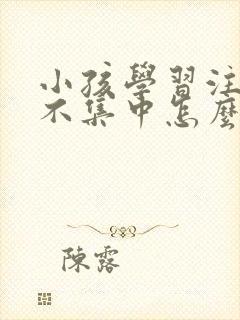 小孩學習注
不集中怎麼
陳露